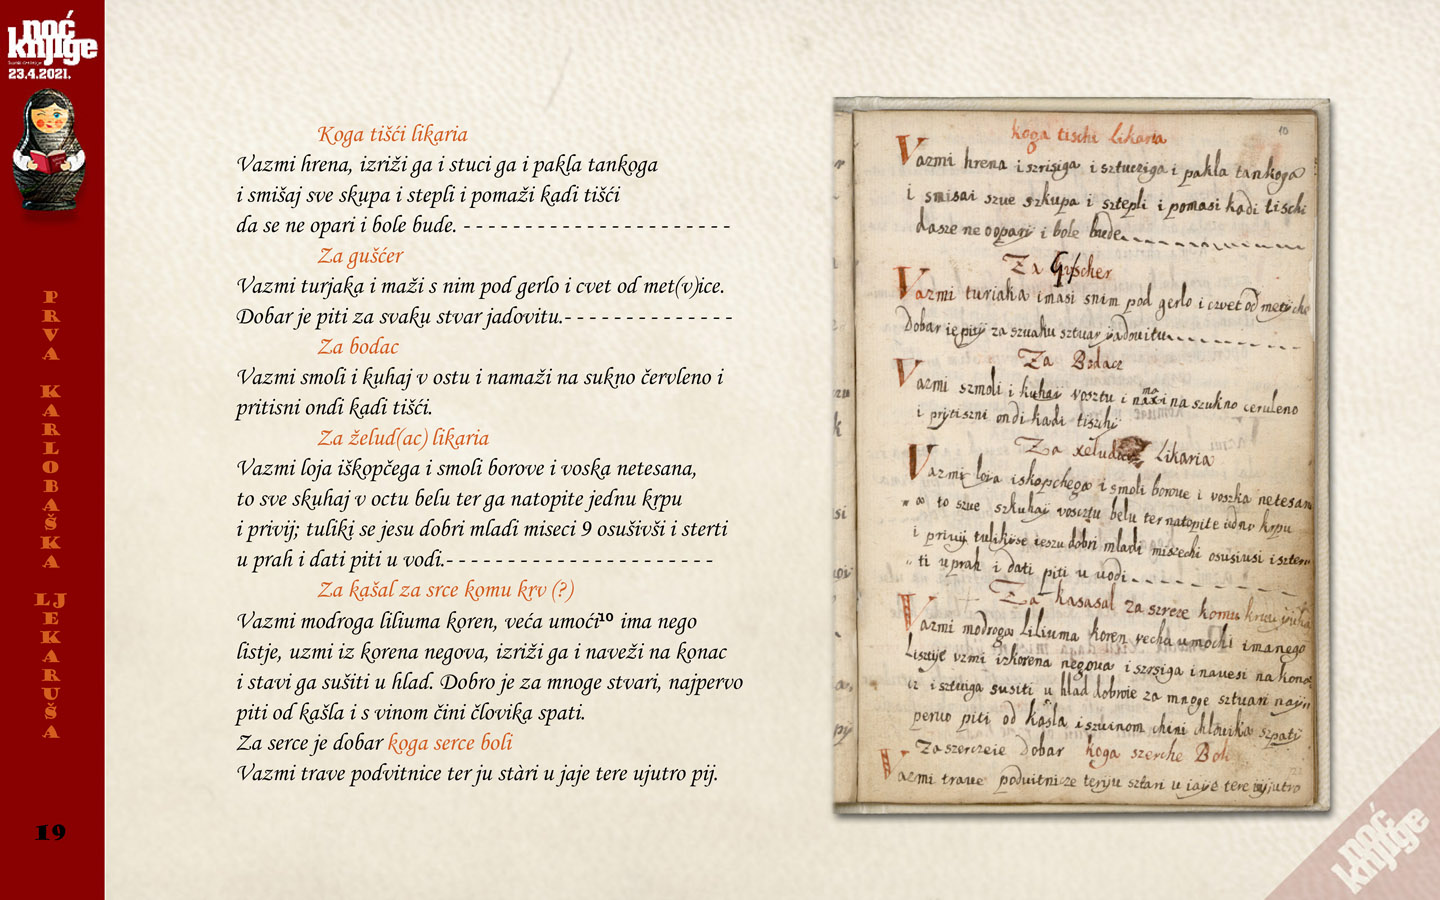 noć
knjige
23.4.2021.
PRVA KARLOBAŠKA LJEKARUŠA
19
Koga tišći likaria
Vazmi hrena, izriži ga i stuci ga i pakla tankoga
i smišaj sve skupa i stepli i pomaži kadi tišći
da se ne opari i bole bude. - - - - - - - - - - - - - - - - - - - - - -
Za gušćer
Vazmi turjaka i maži s nim pod gerlo i cvet od met(v)ice.
Dobar je piti za svaku stvar jadovitu.- - - - - - - - - - - - - -
Za bodac
Vazmi smoli i kuhaj v ostu i namaži na sukno červleno i
pritisni ondi kadi tišći.
Za želud(ac) likaria
Vazmi loja iškopčega i smoli borove i voska netesana,
to sve skuhaj v octu belu ter ga natopite jednu krpu
i privij; tuliki se jesu dobri mladi miseci 9 osušivši i sterti
u prah i dati piti u vodi.- - - - - - - - - - - - - - - - - - - - - -
Za kašal za srce komu krv (?)
Vazmi modroga liliuma koren, veća umoći¹⁰ ima nego
listje, uzmi iz korena negova, izriži ga i naveži na konac
i stavi ga sušiti u hlad. Dobro je za mnoge stvari, najpervo
piti od kašla i s vinom čini človika spati.
Za serce je dobar koga serce boli
Vazmi trave podvitnice ter ju stàri u jaje tere ujutro pij.
10
koga tischi likaria
Vazmi hrena i szrisiga i sztucziga i pakla tankoga
i smisai szue szkupa i sztepli i pomasi kadi tischi
dasze ne opariy i bole bude
Za Guscher
Vazmi turiaka imasi snim pod gerlo i czvet od
Dobar ie pity za szuaku sztuar yadouitu
Za Bodacz
Vazmi szmoli i kuhai vosztu i na szukno ceruleno
i prytiszni ondi kadi tiszhi
Za Likaria
Vazmi loia iskopchega i smoli boroue i voszka netesan
to szue szkuhay vosztu belu ter natopite iednu krpu
i priviy tulikisse ieszu dobri mladi miszechi osusiusi i szter
ti u prah i dati piti u uodi
Za kasasal za szrcze komu
Vazmi modroga Liliuma koren vecha umochi imanego
Lisztye vzmi izkorena negoua i szrsiga i nauesi na kona
cz i sztuiga susiti u hlad dobroie za mnoge sztuari nay
peruo piti od kasla i szuinom chini chlouika szpati
Za szerczeie dobar koga szerche Boli
Vazmi traue poduitnicze teriju sztari u iaye tere uyutro
noć
knjige